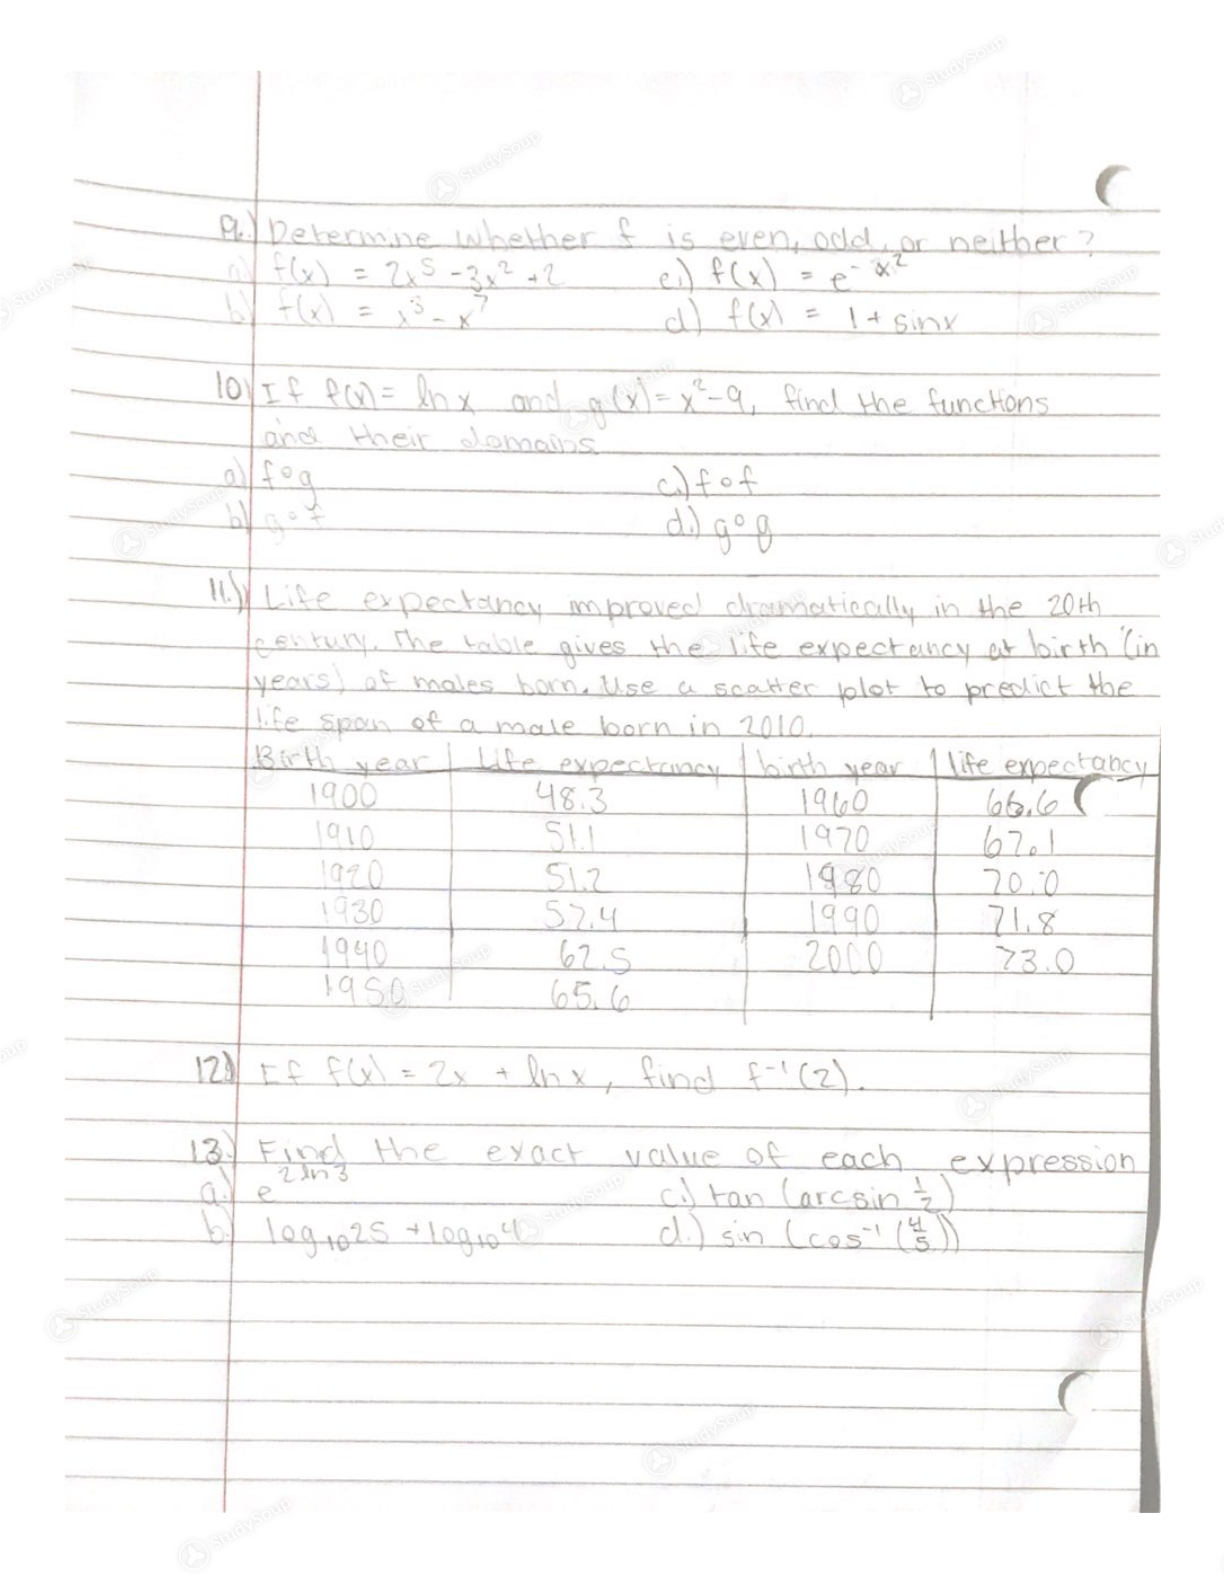 9.) Determine whether f is even, odd, or neither?
a) f(x) = 2x⁵ - 3x² + 2 c.) f(x) = e^-x²
b) f(x) = x³ - x⁷ d) f(x) = 1 + sinx
10) If f(x) = ln x and g(x) = x² - 9, find the functions
and their domains
a) f∘g c.) f∘f
b) g∘f d.) g∘g
11.) Life expectancy improved dramatically in the 20th
century. The table gives the life expectancy at birth (in
years) of males born. Use a scatter plot to predict the
life span of a male born in 2010.
Birth year life expectancy birth year life expectancy
1900 48.3 1960 66.6
1910 51.1 1970 67.1
1920 51.2 1980 70.0
1930 57.4 1990 71.8
1940 62.5 2000 73.0
1950 65.6
12) If f(x) = 2x + ln x, find f⁻¹(2).
13.) Find the exact value of each expression
a.) e^2 ln 3 c.) tan (arcsin 1/2)
b.) log₁₀25 + log₁₀4 d.) sin (cos⁻¹ (4/5))
StudySoup